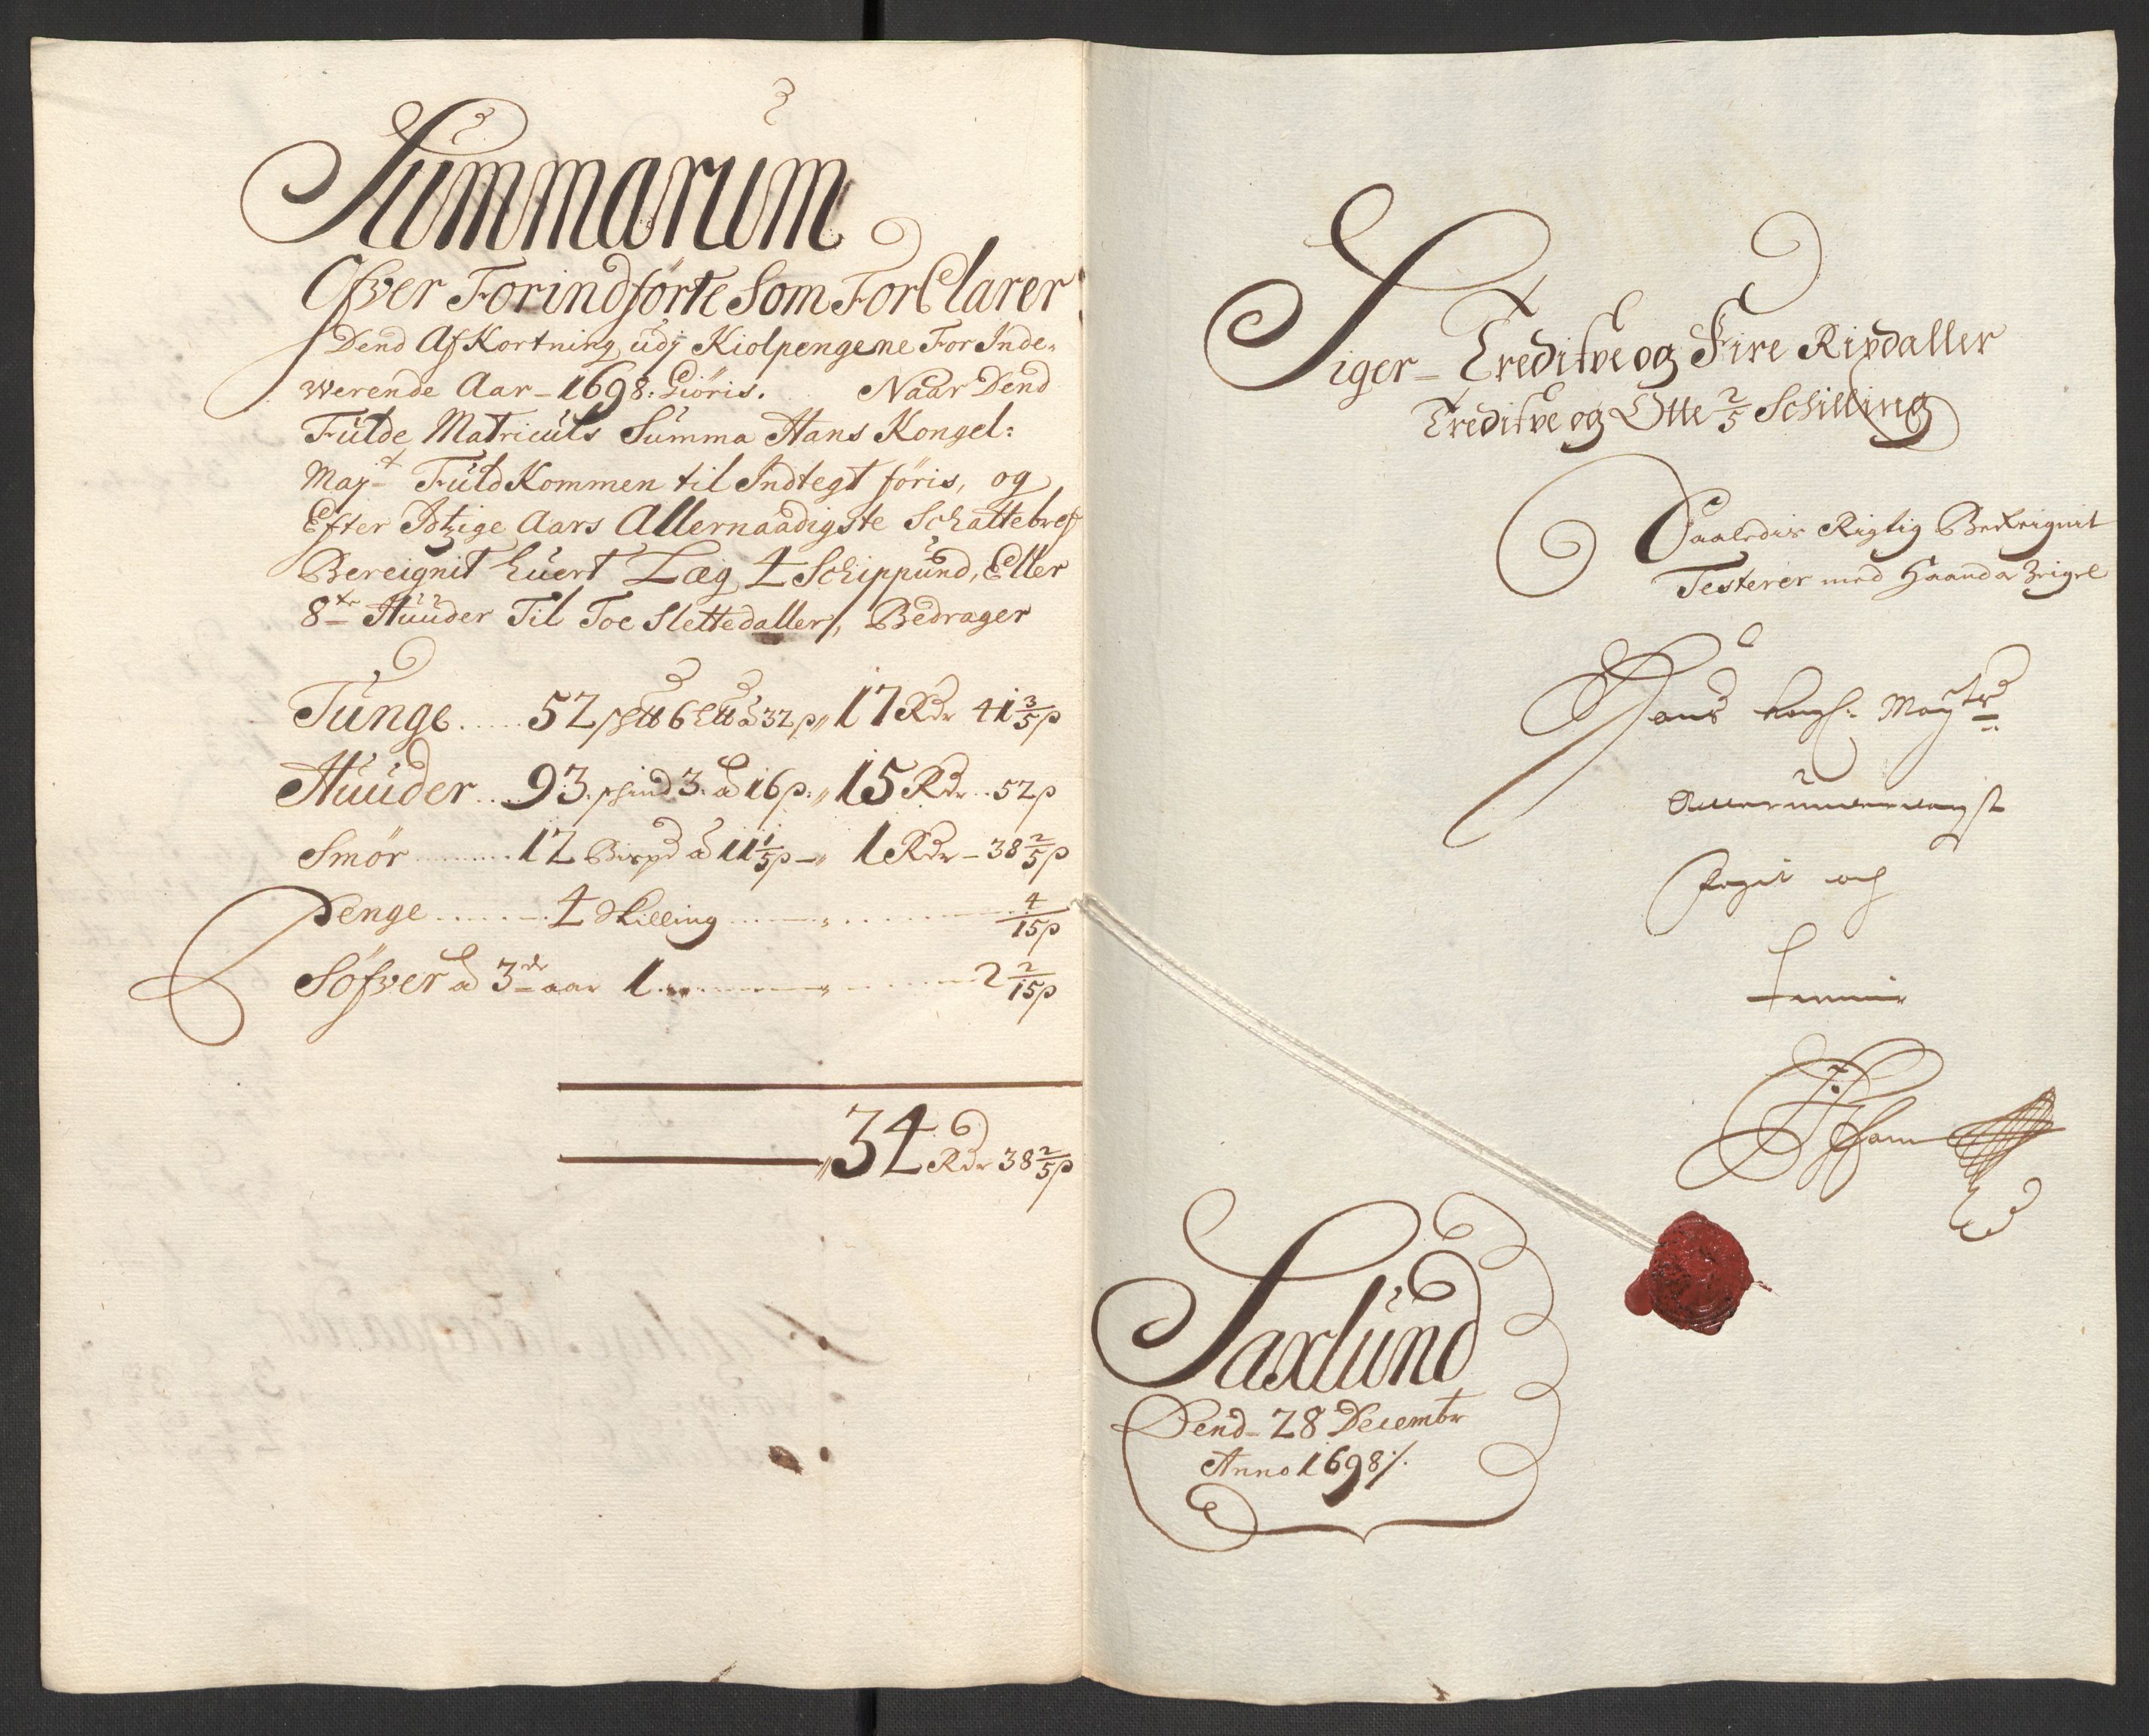 Summarum
Ofver Forindförte Som ForClarer
Dend AfKortning udj Kiolpengene For Inde-
werende Aar - 1698: Giöris. Naar Dend
Fulde Matriculs Summa Hans Kongel:
Mayt FuldKommen til Indtegt föris, og
Efter Itzige Aars Allernaadigste Schattebref
Bereignit huert Læg 1 Schippund, Eller
8te Huuder Til Toe Slettedaller/, Bedrager
Tunge ..... 52 6 a 32 p 17 Rdr 41 3/5 p
Huuder .. 93. 3. a 16 p: 15 Rdr .. 52 p
Smör ......... 12 Bispd a 11 1/5 p - 1 Rdr - 38 2/5 p
Penge ......... 1 Skilling ......... 4/15 p
Söfver a 3de aar 1 ......... 2 2/15 p
34 Rdr 38 2/5 p
Siger - Tredifve og Fire Rixdaller
Tredifve og Otte 2/5 Schilling
Saaledis Rigtig Bereignit
Testerer med Haand & Zeigel
Hans Kongl: Maytz
Fogit och
Saxlund
Dend - 28 Decembr
Anno 1698/.